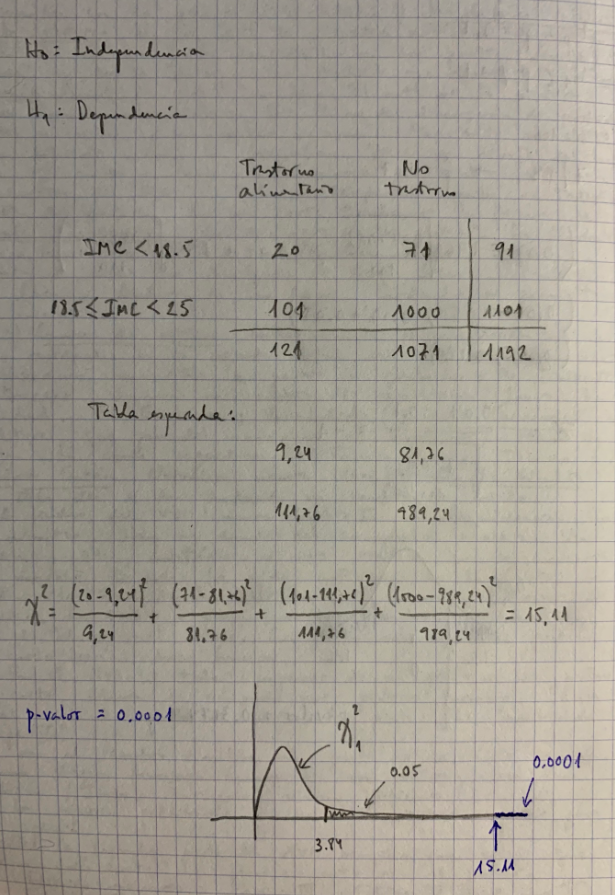 H₀ = Independencia
H₁ : Dependencia
Trastorno alimentario No trastorno
IMC < 18.5 20 71 91
18.5 ≤ IMC < 25 101 1000 1101
121 1071 1192
Tabla esperada:
9,24 81,76
111,76 989,24
χ² = (20-9,24)²/9,24 + (71-81,76)²/81,76 + (101-111,76)²/111,76 + (1000-989,24)²/989,24 = 15,11
p-valor = 0.0001
χ²₁
0.05
0.0001
3.84
15.11